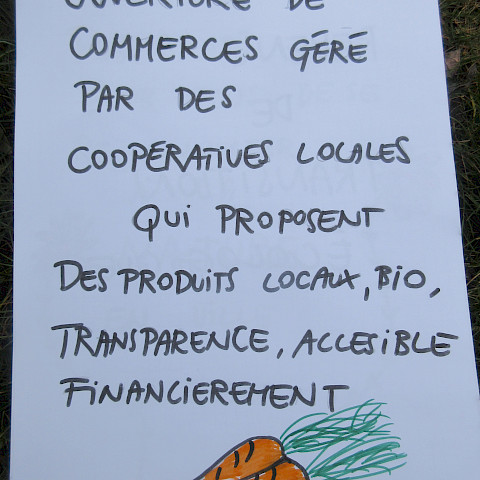 OUVERTURE DE
COMMERCES GÉRÉ
PAR DES
COOPÉRATIVES LOCALES
QUI PROPOSENT
DES PRODUITS LOCAUX, BIO,
TRANSPARENCE, ACCESIBLE
FINANCIEREMENT